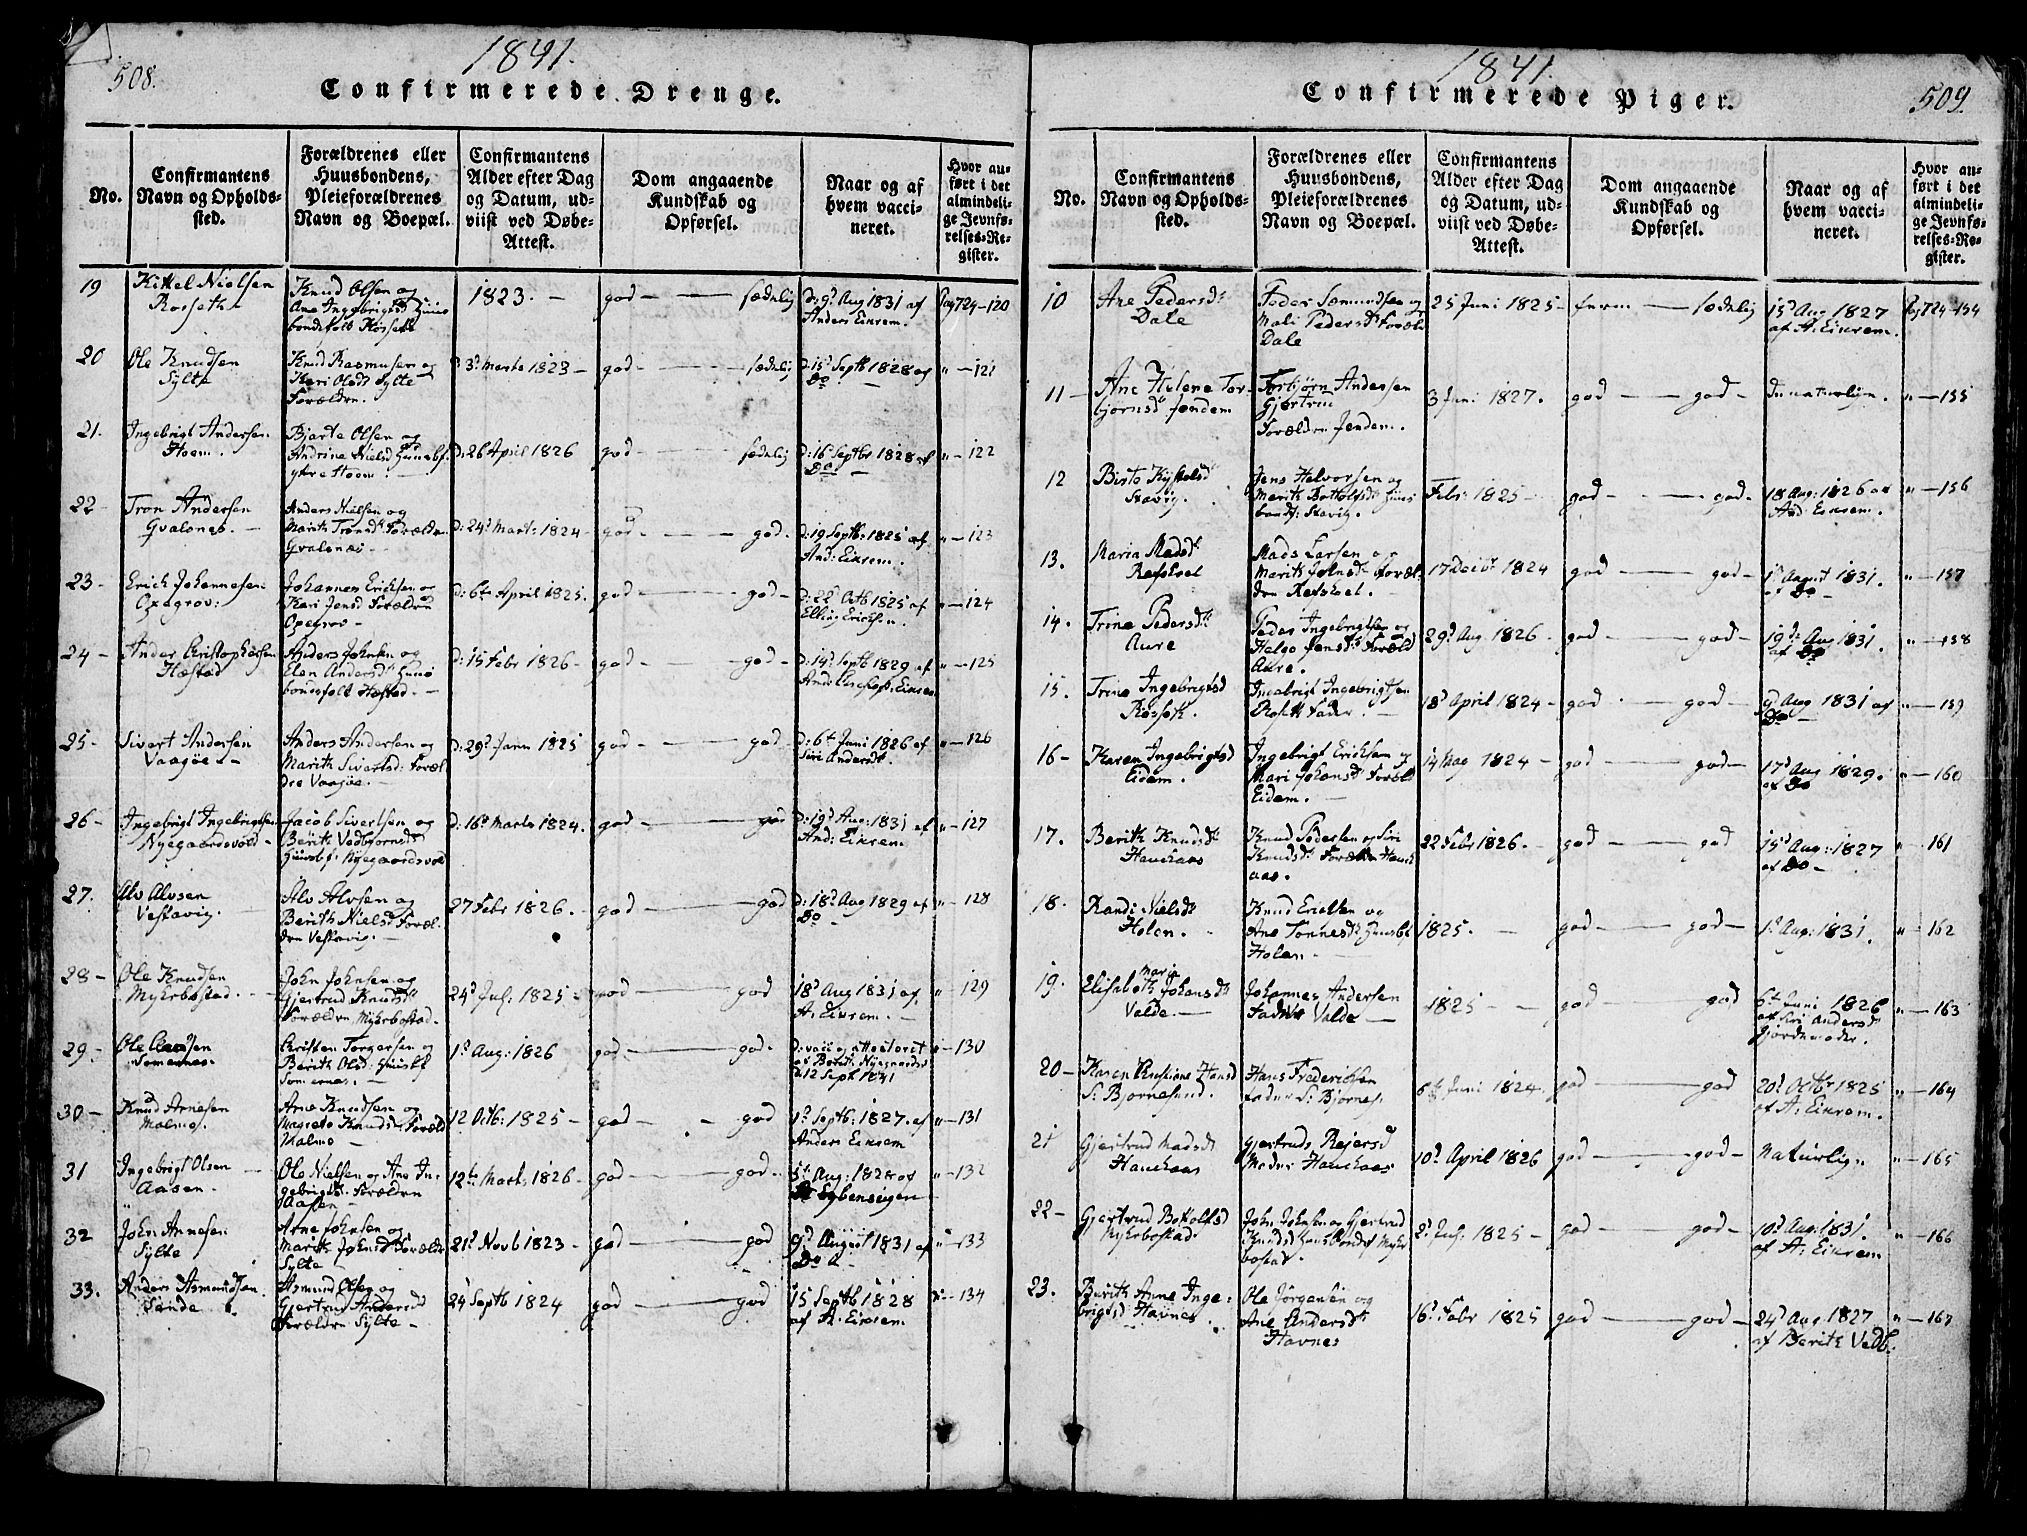 508.
1841.
Confirmerede Drenge.
No.
Confirmantens
Navn og Opholds-
sted.
Forældrenes eller
Huusbondens,
Pleieforældrenes
Navn og Boepæl.
Confirmantens
Alder efter Dag
og Datum, ud-
viist ved Døbe-
Attest.
Dom angaaende
Kundskab og
Opførsel.
Naar og af
hvem vacci-
neret.
Hvor an-
ført i det
almindeli-
ge Jevnfø-
relses-Re-
gister.
19
Kittel Nielsen
Rosseth
Knud Olsen og
Ane Ingebrigtsd Huus
bondefolk Rosseth
1823. -
god - - sædelig
d: 9d Aug 1831 af
Anders Eikrem.
Pag 724-120
20
Ole Knudsen
Sylte
Knud Rasmusen og
Kari Olsd Sylte
Forældre.
3d Marts 1823 -
god - - sædelig
d: 15d Septb 1828 af
Do -
" - 121
21.
Ingebrigt Andersen
Hoem.
Bjarte Olsen og
Andrine Nielsd Huusbf.
ytre Hoem. -
d: 26 April 1826
god - - sædelig
d: 16 Septbr 1828 af
Do -
" - 122
22 -
Tron Andersen
Gvalenes. -
Anders Nielsen og
Marith Tronsd Forældre
Gvalenæs -
d: 24d Marts 1824 -
god - - god.
d: 19 Septb: 1825 af
And: Eikrem.
" - 123
23 -
Erich Johannesen
Opdgrov:
Johannes Ericksen og
Kari Jensd Forældre
Opegrov -
d: 6te April 1825.
god - - god -
d: 22d Octb 1825 af
Elling Ericksen.
" - 124
24 -
Ander Christophersen
Hæstad
Anders Johnsen og
Elen Andersd Huus
bondefolk Hæstad. -
d: 15 Febr 1826 -
god - - god -
d: 14d Septb 1829 af
And: Eikrem
" - 125
25 -
Sivert Andersen
Vaagøe -
Anders Andersen og
Marith Sivertsd: Foræl
dre Vaagøe. -
d: 29d Janu 1825
god - - god.
d: 6te Juni 1826 af
Siri Andersd.
" - 126
26 -
Ingebrigt Ingebrigtsen
Nyegaardsvold -
Jacob Sivertsen og
Berith Vedbjornsd
Huusbf: Nyegaardsvold
d: 16d Marts 1824.
god - - god
d: 19d Aug: 1831 af
And: Eikrem.
" - 127
27.
Alv Alvsen
Vestavig. -
Alv Alvsen og
Berith Nielsd Foræl.
dre Vestavig. -
27 Febr 1826. -
god - - god
d: 18d Aug 1829 af
Do -
" - 128
28 -
Ole Knudsen
Myhrbostad. -
John Johnsen og
Gjertrud Knudsd
Forældre Myhrbostad.
24d Jul: 1825 -
god - - god
18d Aug 1831 af
A: Eikrem. -
" - 129
29 -
Ole
Somernes.
Christen Torgersen
Berith Olsd: Huusbf
Somernes. -
1d Aug: 1826
god - - god.
d: 12 Septb 1841
130
30 -
Knud Arnesen
Malmø.
Arne Knudsen og
Magrete Knudsd Foræld
Malmø -
12 Octb: 1825 -
god - - god
1d Septb: 1827. af
Anders Eikrem
" - 131
31
Ingebrigt Olsen
Aasen.
Ole Nielsen og Ane In-
gebrigtsd. Forældre
Aasen -
12te Marts 1826 -
god - - god.
" - 132
32
John Arnesen
Sylte
Arne Johnsen og
Marith Johnsd Forældr
Sylte -
21d Novb 1823 -
god - - god
9d August 1831 af
Do
" - 133
33.
Anders Asmundsen
Sande
Asmund Olsen og
Gjertrud Andersd
Forældre Sylte -
24d Septb 1824
god - - god
15 Septb 1828
af A. Eikrem
134
1841.
509.
Confirmerede Piger.
No.
Confirmantens
Navn og Opholds-
sted.
Forældrenes eller
Huusbondens,
Pleieforældrenes
Navn og Boepæl.
Confirmantens
Alder efter Dag
og Datum, ud-
viist ved Døbe-
Attest.
Dom angaaende
Kundskab og
Opførsel.
Naar og af
hvem vacci-
neret.
Hvor an-
ført i det
almindeli-
ge Jevnfø-
relses-Re-
gister.
10
Ane Pedersd
Dale
Peder Semundsen og
Mali Pedersd Foræld
Dale
25 Juni 1825 -
sædelig
15d Aug 1827
af A. Eikrem.
Pag 724-154
11 -
Ane Helene Tor-
bjornsd Jendem
Torbjørn Andersen
Gjertrud
Forældre Jendem.
3 Juni 1827.
god - - god -
De naturlige.
" - 155
12
Birte
Stavig.
Jens Halvorsen og
Marith Bottolfsd Huus
bondf: Stavig.
Febr: 1825 -
god - - god -
18 Aug: 1826 af
And Eikrem.
" - 156
13.
Maria Madsd
Mads Larsen og
Marith Johnsd Foræl.
17 Decbr 1824
god - - god -
1d August 1831.
af Do -
" - 157
14.
Trine Pedersd
Aure
Peder Ingebrigtsen og
Helge Jensd Foræld
Aure.
29d Aug 1826.
god - - god -
19de Aug 1831.
af Do
" - 158
15.
Trine Ingebrigtsd
Rosseth.
Ingebrigt Ingebrigtsen
Rosseth Fader. -
18d April 1824 -
god - - god -
9d Aug 1831 af
Do -
" - 159
16 -
Karen Ingebrigtsd
Eidem.
Ingebrigt Ericksen og
Mari Johansd Foræld
Eidem. -
14 May 1824 -
god - - god -
17d Aug 1829.
af Do
" - 160
17.
Berith Knudsd
Hauchaas
Knud Pedersen og Siri
Knudsd Forældre Hauch
aas.
22 Febr 1826. -
god - - god
15d Aug: 1827
af Do -
" - 161
18.
Randi Nielsd
Holen.
Knud Ericksen og
Ane Tønnesd Huusbf
Holen -
1825. -
god - - god -
1d Aug: 1831.
" - 162
19.
Elisabeth Maria Johansd
Valde. -
Johannes Andersen
Fader Valde -
1825 - -
god - - god
6te Juni 1826
af Siri Andersd
Gjordemoder.
" - 163
20 -
Karen Christiane Hansd
S: Bjornesund.
Hans Frederiksen
Fader S: Bjornes.
6te Juni 1824.
god - - god
20d Octbr 1825
af A: Eikrem.
" - 164
21
Gjertrud Madsd
Hauchaas
Gjertruds Rejersd
Moder Hauchaas
10d April 1826
god - - god -
Naturlige
" - 165
22 -
Gjertrud Bottolfsd
Myhrbostad
John Johnsen og Gjertrud
Knudsd Huusbondef Myhr
bostad.
2d Jul: 1825 -
god - - god -
10d Aug: 1831.
af A: Eikrem
" - 166
23.
Berith Anne Inge-
brigtsd Havnes.
Ole Jørgensen og
Ane Andersd
Havnes
16d Febr 1825
god - - god -
24d Aug 1827
af Berith Vedb.
" - 167